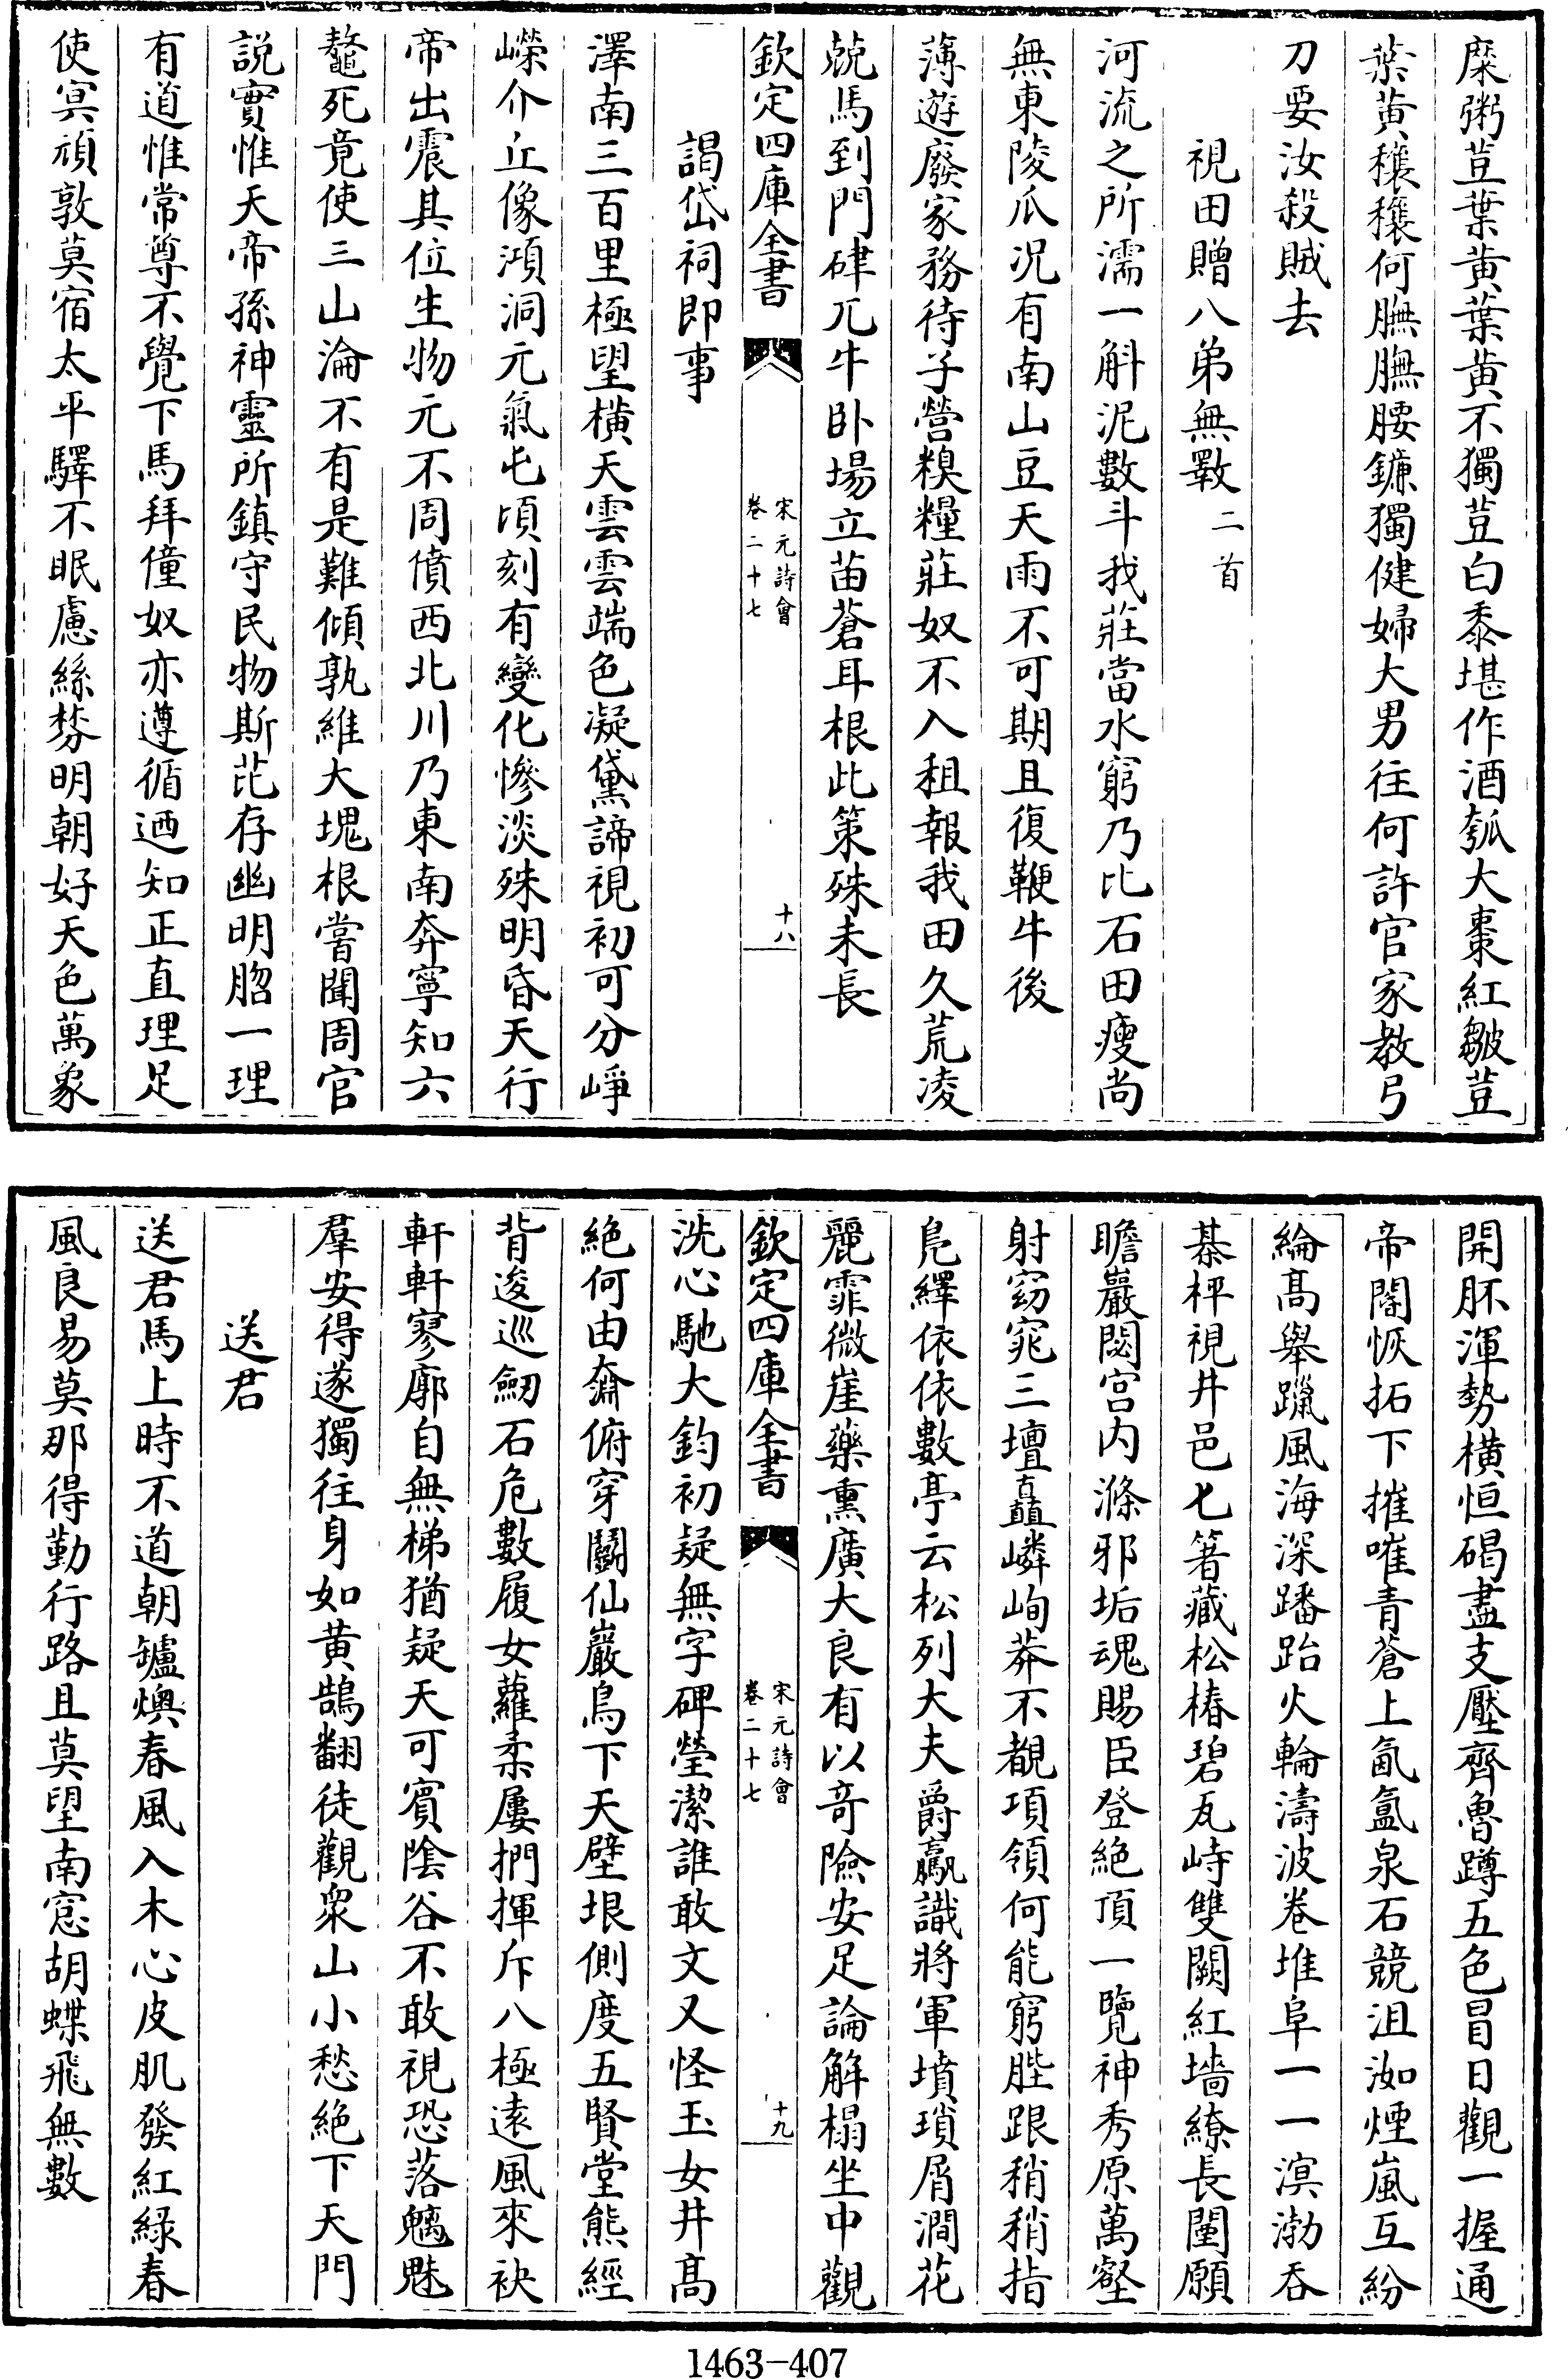 糜粥荳葉黄葉黄不獨荳白黍堪作酒瓠大棗紅皺荳
葉黄穰穰何膴膴腰鐮獨健婦大男往何許官家教弓
刀要汝殺賊去
視田贈八弟無斁二首
河流之所濡一斛泥數斗我莊當水窮乃比石田瘦尚
無東陵瓜況有南山豆天雨不可期且復鞭牛後
薄遊廢家務待子營糗糧莊奴不入租報我田久荒凌
兢馬到門硉兀牛卧場立苗蒼耳根此策殊未長
欽定四庫全書
宋元詩會
卷二十七
十八
謁岱祠即事
澤南三百里極望横天雲雲端色凝黛諦視初可分崢
嶸介丘像澒洞元氣屯頃刻有變化慘淡殊明昏天行
帝出震其位生物元不周僨西北川乃東南奔寧知六
鼇死竟使三山淪不有是難傾孰維大塊根嘗聞周官
説實惟天帝孫神靈所鎮守民物斯芘存幽明脗一理
有道惟常尊不覺下馬拜僮奴亦遵循迺知正直理足
使冥頑敦莫宿太平驛不眠慮絲棼明朝好天色萬象
開肧渾勢横恒碣盡支壓齊魯蹲五色冒日觀一握通
帝閽恢拓下摧嗺青蒼上氤氳泉石競沮洳煙嵐互紛
綸髙舉躐風海深蟠跆火輪濤波卷堆阜一一溟渤吞
棊枰視井邑七箸藏松椿碧瓦峙雙闕紅墻繚長闉願
瞻巖閟宫内滌邪垢魂賜臣登絶頂一覽神秀原萬壑
射窈窕三壇矗嶙峋莽不覩項領何能窮䏶跟稍稍指
凫繹依依數亭云松列大夫爵贔識將軍墳瑣屑澗花
麗霏微崖藥熏廣大良有以奇險安足論解榻坐中觀
欽定四庫全書
宋元詩會
卷二十七
十九
洗心馳大鈞初疑無字碑瑩潔誰敢文又怪玉女井髙
絶何由奫俯穿鬭仙巖鳥下天壁垠側度五賢堂熊經
背逡巡劒石危數履女蘿柔屢捫揮斥八極遠風來袂
軒軒寥廓自無梯猶疑天可賓陰谷不敢視恐落魑魅
羣安得遂獨往身如黄鵠翻徒觀衆山小愁絶下天門
送君
送君馬上時不道朝鑪燠春風入木心皮肌發紅緑春
風良易莫那得勤行路且莫望南窓胡蝶飛無數
1463-407